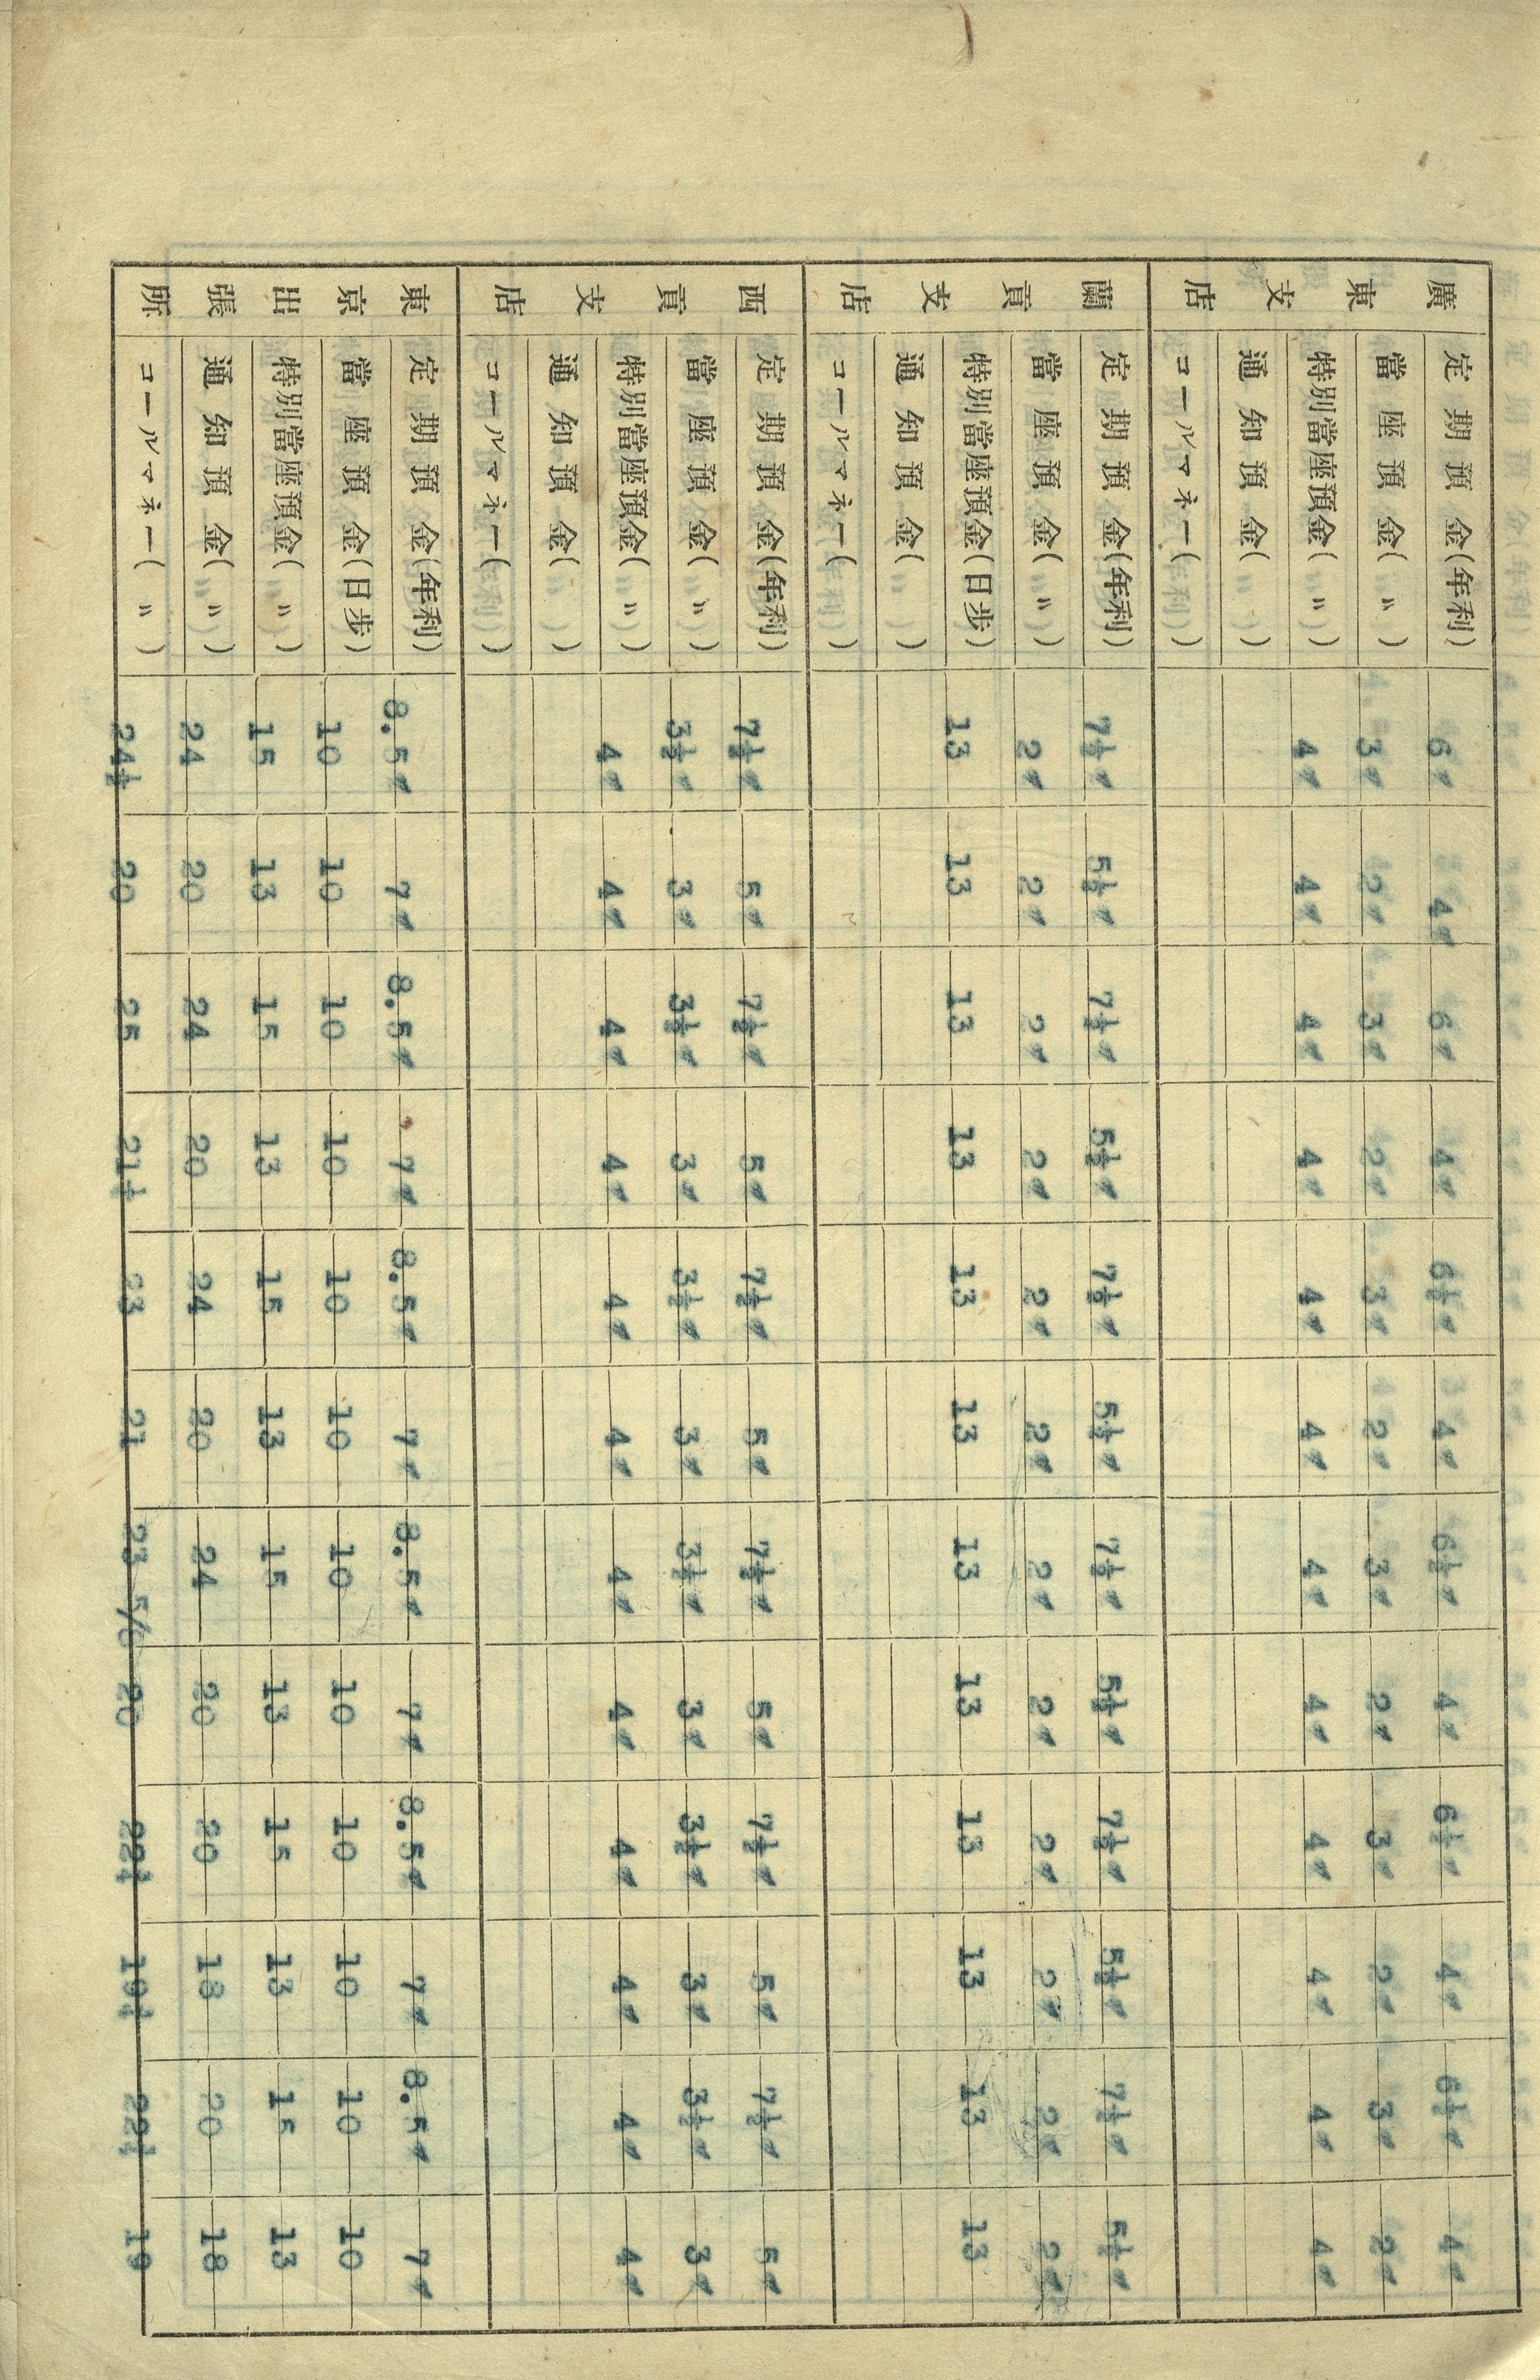 廣東支店
定期預金(年利) 6% 4% 6% 4% 6½% 4% 6½% 4% 6½% 4% 6½% 4%
當座預金( 〃 ) 3% 2% 3% 2% 3% 2% 3% 2% 3% 2% 3% 2%
特別當座預金( 〃 ) 4% 4% 4% 4% 4% 4% 4% 4% 4% 4% 4% 4%
通知預金( )
コールマネー( )
蘭貢支店
定期預金(年利) 7½% 5½% 7½% 5½% 7½% 5½% 7½% 5½% 7½% 5½% 7½% 5½%
當座預金( 〃 ) 2% 2% 2% 2% 2% 2% 2% 2% 2% 2% 2% 2%
特別當座預金(日歩) 13 13 13 13 13 13 13 13 13 13 13 13
通知預金( )
コールマネー( )
西貢支店
定期預金(年利) 7½% 5% 7½% 5% 7½% 5% 7½% 5% 7½% 5% 7½% 5%
當座預金( 〃 ) 3½% 3% 3½% 3% 3½% 3% 3½% 3% 3½% 3% 3½% 3%
特別當座預金( 〃 ) 4% 4% 4% 4% 4% 4% 4% 4% 4% 4% 4% 4%
通知預金( )
コールマネー( )
東京出張所
定期預金(年利) 8.5% 7% 8.5% 7% 8.5% 7% 8.5% 7% 8.5% 7% 8.5% 7%
當座預金(日歩) 10 10 10 10 10 10 10 10 10 10 10 10
特別當座預金( 〃 ) 15 13 15 13 15 13 15 13 15 13 15 13
通知預金( 〃 ) 24 20 24 20 24 20 24 20 20 18 20 18
コールマネー( 〃 ) 24½ 20 25 21½ 23 21 23 5/6 20 22½ 19½ 22½ 19